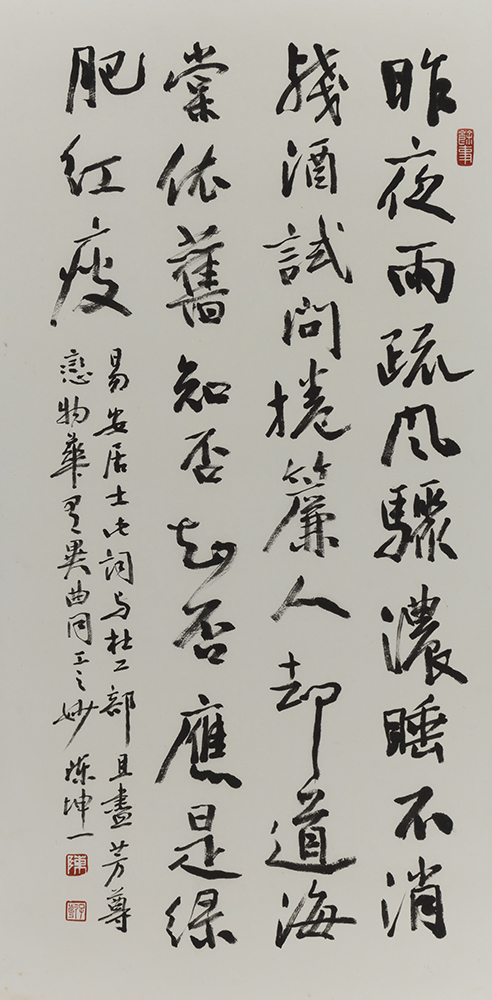 昨夜雨疏风驟濃睡不消
殘酒試問捲簾人却道海
棠依舊知否知否應是绿
肥红瘦
易安居士此词与杜工部且盡芳尊
戀物華有異曲同工之妙 陳坤一